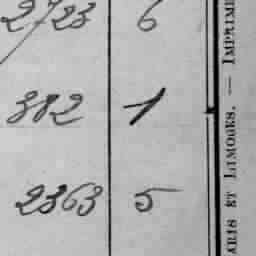 2723 6
382 1
2363 5
ARIS ET LIMOGES. — IMPRIME